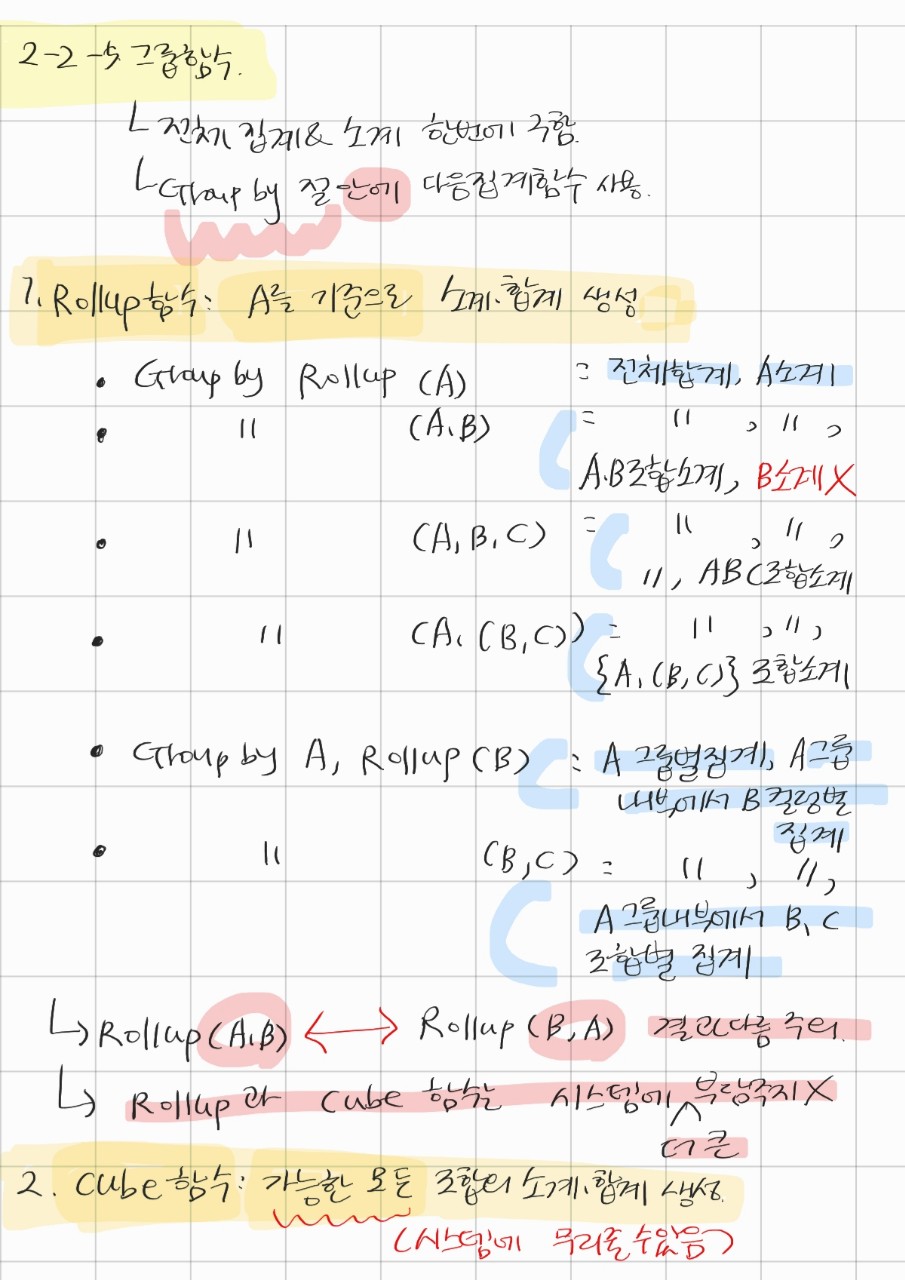 2-2-5 그룹함수.
└ 전체 집계 & 소계 한번에 구함.
└ Group by 절 안에 다음집계함수 사용.
1. Rollup함수: A를 기준으로 소계·합계 생성
• Group by Rollup (A) = 전체합계, A소계
• 〃 (A,B) = 〃 , 〃 ,
A.B조합소계, B소계X
• 〃 (A, B, C) = 〃 , 〃 ,
〃, ABC조합소계
• 〃 (A, (B,C)) = 〃 , 〃 ,
{A, (B,C)} 조합소계
• Group by A, Rollup (B) : A 그룹별집계, A그룹
내부에서 B컬럼별
집계
• 〃 (B,C) = 〃 , 〃,
A 그룹내부에서 B, C
조합별 집계
↳ Rollup(A,B) ↔ Rollup(B,A) 결과다름 주의.
↳ Rollup과 Cube 함수는 시스템에 ^ 부담주지X
더 큰
2. Cube함수: 가능한 모든 조합의 소계·합계 생성.
(시스템에 무리줄 수있음)